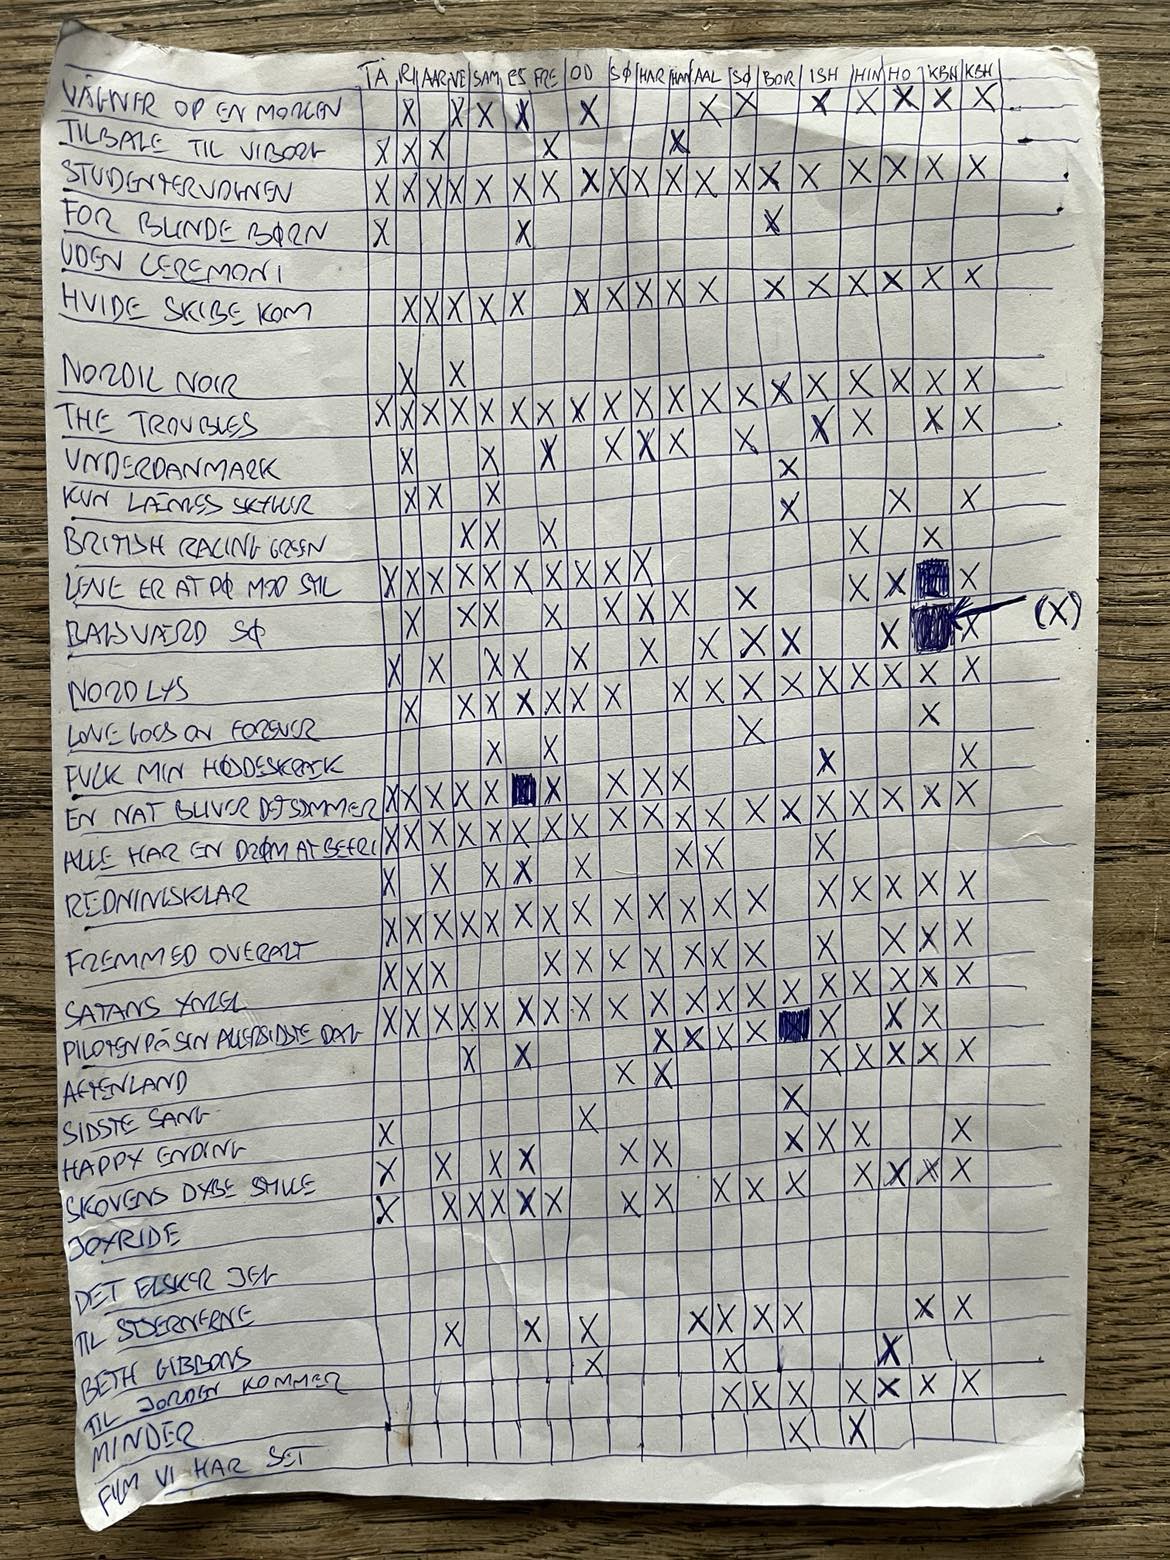 TÅ RI AAR NE SAM ES FRE OD SØ HAR HAM AAL SØ BOR ISH HIN HO KBH KBH
VÅGNER OP EN MORGEN X X X X X X X X X X X X
TILBAGE TIL VIBORG X X X X X
STUDENTERVOGNEN X X X X X X X X X X X X X X X X X X X
FOR BLINDE BØRN X X X
UDEN CEREMONI
HVIDE SKIBE KOM X X X X X X X X X X X X X X X X
NORDIC NOIR X X
THE TROUBLES X X X X X X X X X X X X X X X X X X X
UNDERDANMARK X X X X X X X X X X X
KUN LÆNGES X X X X
BRITISH RACING GREEN X X X X X X
LENE ER AT PØ MOD SMIL X X X X X X X X X X X X X
BAGSVÆRD SØ X X X X X X X X X X (X)
NORDLYS X X X X X X X X X X
LOVE GOES ON FOREVER X X X X X X X X X X X X X X X X
FUCK MIN X X X X
EN NAT BLIVER DET SOMMER X X X X X X X X X X X
ALLE HAR EN DRØM AT BEFRI X X X X X X X X X X X X X X X X X X X
REDNINGSKLAR X X X X X X X X
FREMMED OVERALT X X X X X X X X X X X X X X X X X X
SATANS YNGEL X X X X X X X X X X X X X X
PILOTEN PÅ SIN ALLERSIDSTE DAG X X X X X X X X X X X X X X X X X X X
AFTENLAND X X X X X X X X X
SIDSTE SANG X X X X X X X
HAPPY ENDING X X X
SKOVENS DYBE STILLE X X X X X X X X X X
JOYRIDE X X X X X X X X X X X X X X
DET ELSKER JEG
TIL STJERNERNE
BETH GIBBONS X X X X X X X X X
TIL JORDEN KOMMER X X X
MINDER X X X X X X X
FILM VI HAR SET X X